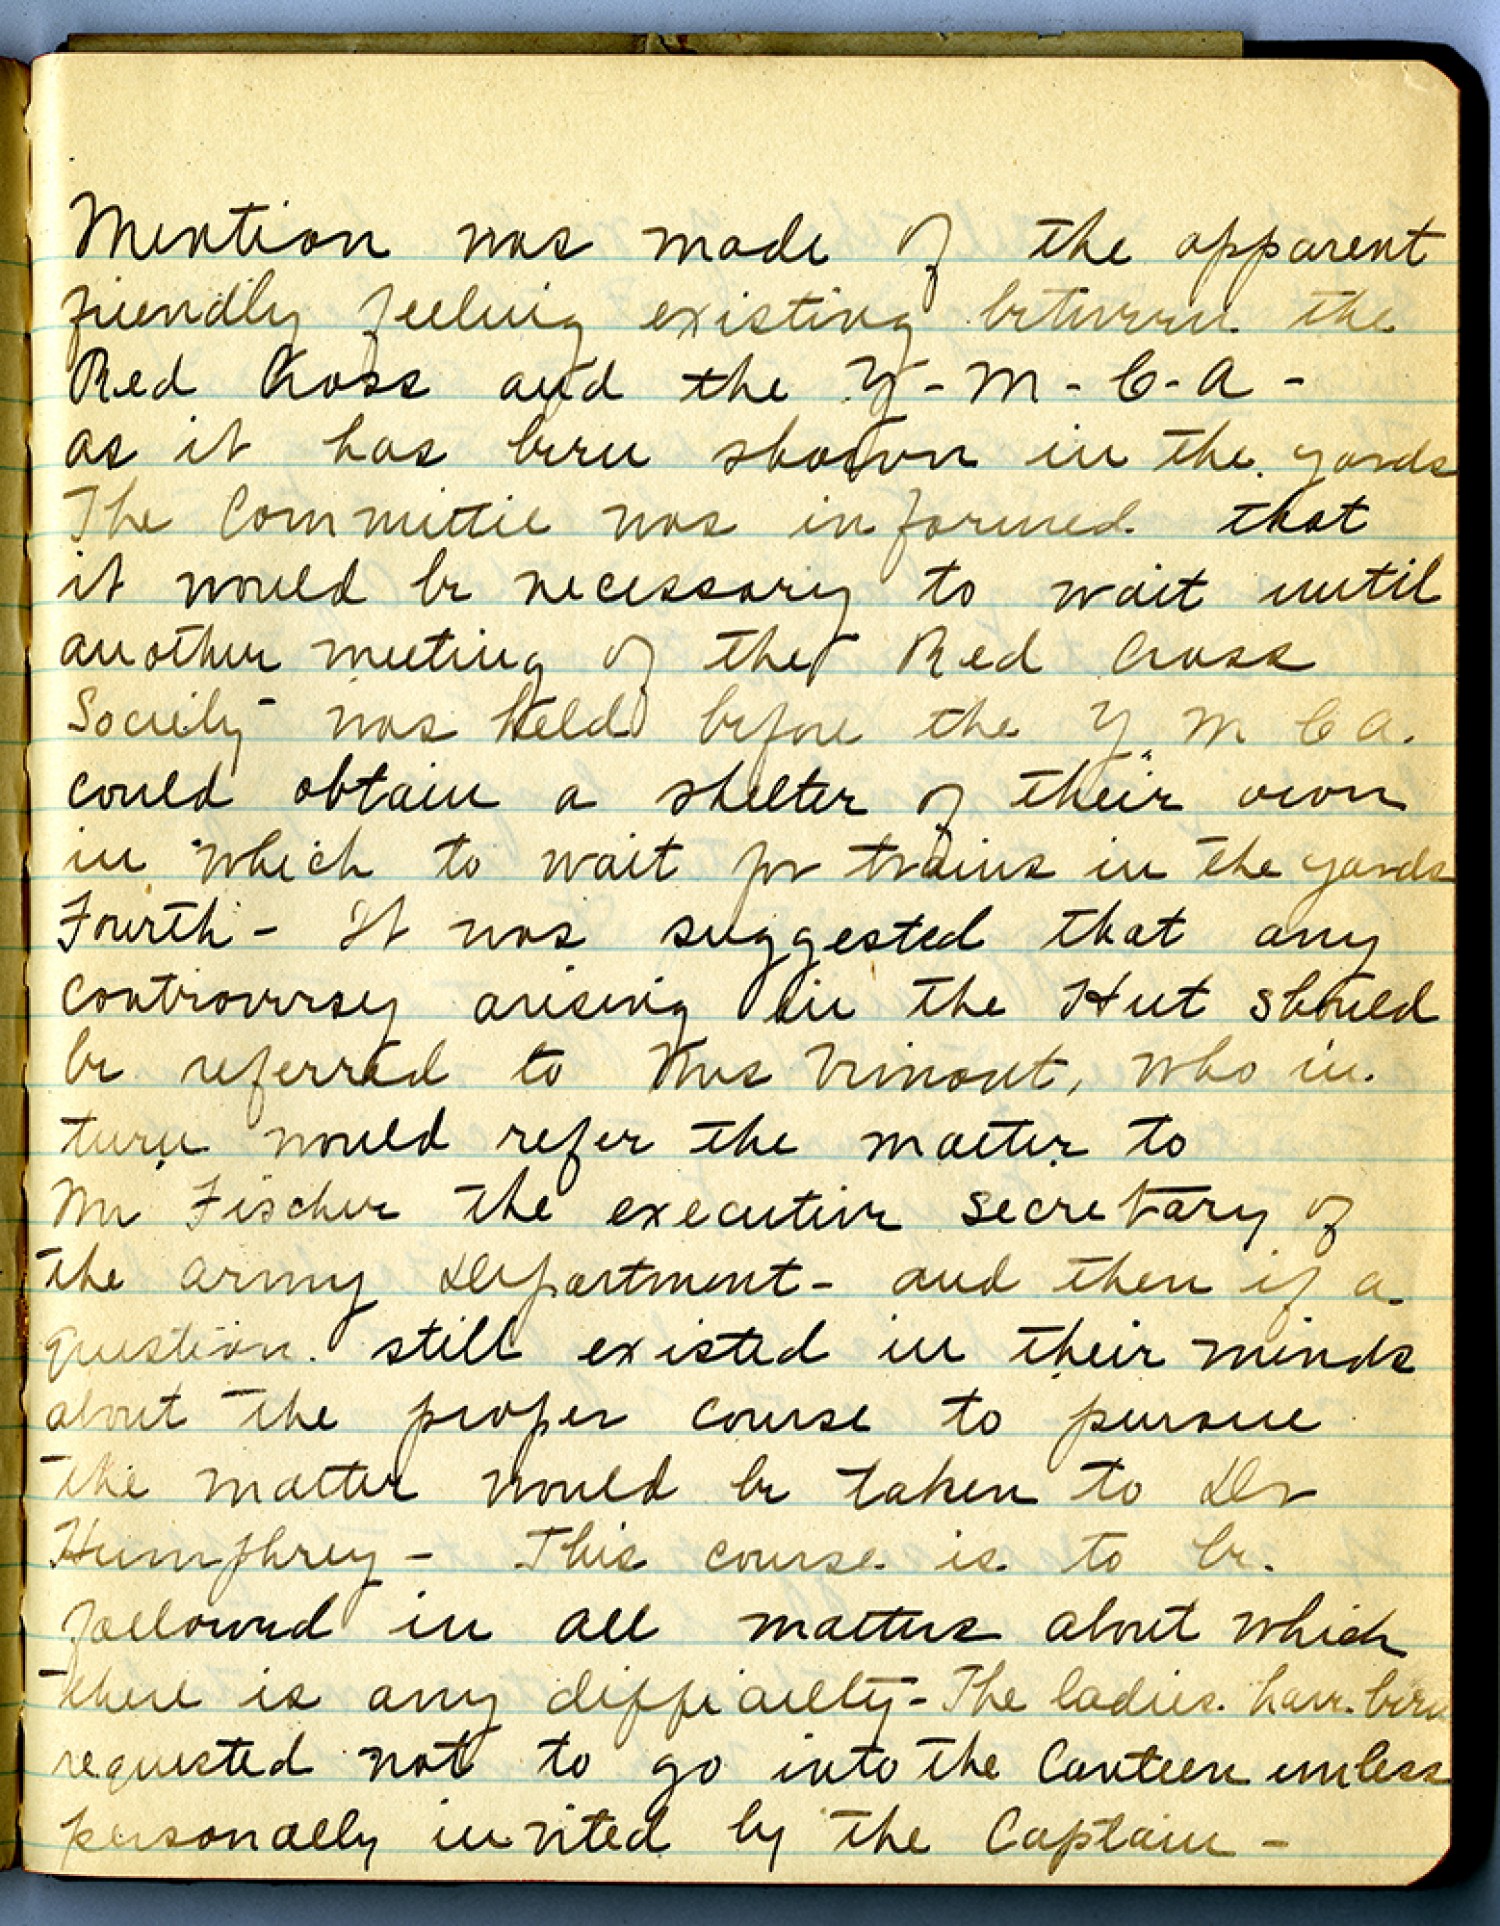 Mention was made of the apparent
friendly feeling existing between the
Red Cross and the Y-M-C-A-
as it has been shown in the yards
The Committee was informed that
it would be necessary to wait until
another meeting of the Red Cross
Society was held before the Y. M C A.
could obtain a shelter of their own
in which to wait for trains in the yards
Fourth - It was suggested that any
controversy arising in the Hut should
be referred to Mrs , who in
turn would refer the matter to
Mr Fischer the executive secretary of
the Army Department - and then if a
question still existed in their minds
about the proper course to pursue
the matter would be taken to Dr
Humphrey - This course is to be
followed in all matters about which
there is any difficulty - The ladies have been
requested not to go into the Canteen unless
personally invited by the Captain -